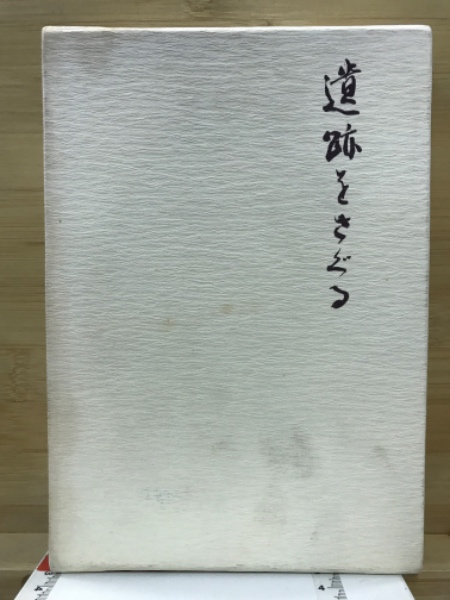 遺跡をさぐる